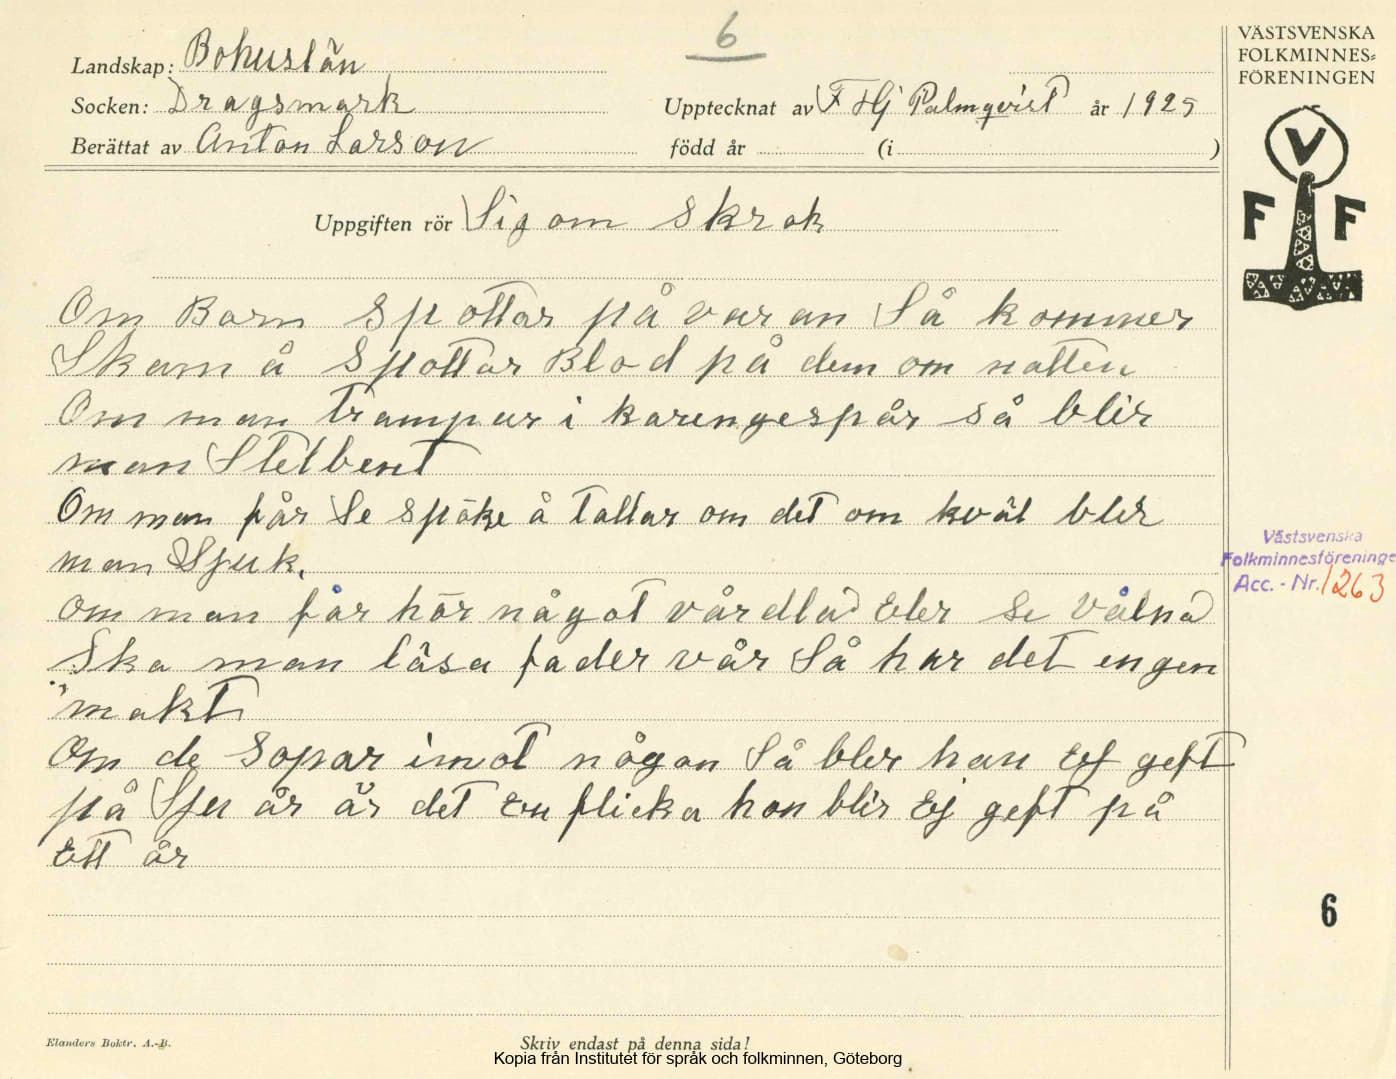 6
VÄSTSVENSKA
FOLKMINNES=
FÖRENINGEN
Landskap: Bohuslän
Socken: Dragsmark
Upptecknat av F Hj Palmqvist år 1925
Berättat av Anton Larson
född år (i )
V
F F
Uppgiften rör Sig om Skrok
Om Barn Spottar på varan Så kommer
Skam å Spottar Blod på dem om natten
Om man trampar i karengespår så blir
man Stelbent
Om man får Se Spöke å tallar om det om kväl blir
man Sjuk.
om man får hör något vårdlä Eler Se Vålna
Ska man läsa fader vår Så har det engen
makt
Om de Sopar imot någon Så bler han Ej geft
på Sju år är det En flicka hon blir Ej geft på
Ett år
Västsvenska
Folkminnesföreninge
Acc. - Nr. 1263
6
Elanders Boktr. A.-B.
Skriv endast på denna sida!
Kopia från Institutet för språk och folkminnen, Göteborg